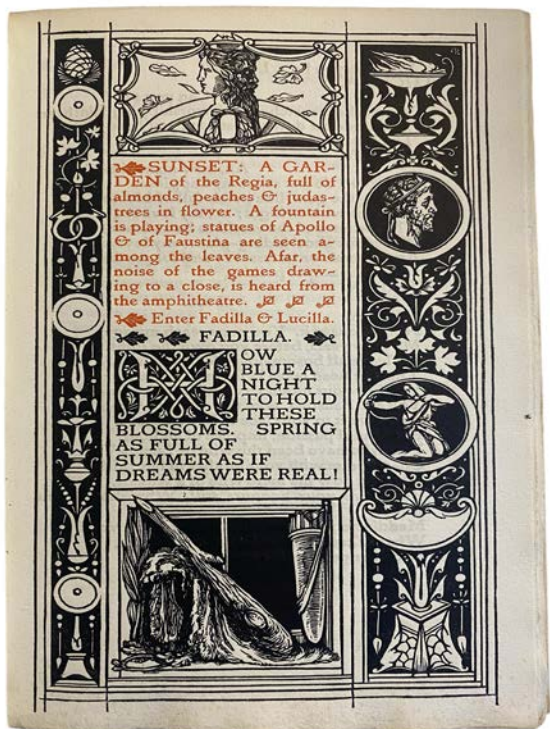 SUNSET: A GAR-
DEN of the Regia, full of
almonds, peaches & judas-
trees in flower. A fountain
is playing; statues of Apollo
& of Faustina are seen a-
mong the leaves. Afar, the
noise of the games draw-
ing to a close, is heard from
the amphitheatre.
Enter Fadilla & Lucilla.
FADILLA.
HOW
BLUE A
NIGHT
TO HOLD
THESE
BLOSSOMS. SPRING
AS FULL OF
SUMMER AS IF
DREAMS WERE REAL!